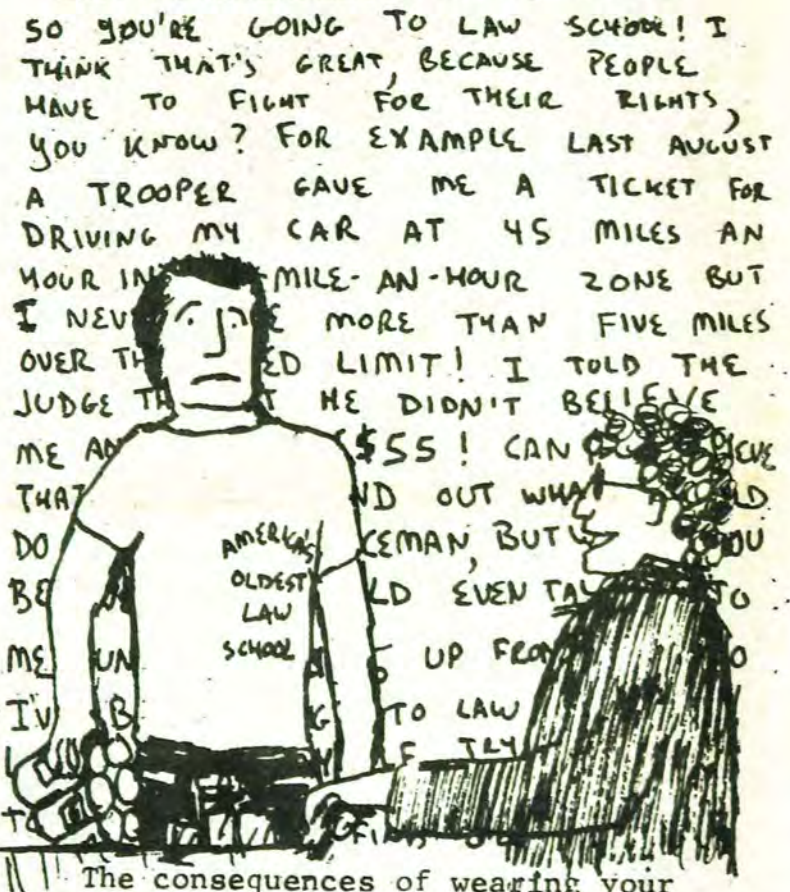 SO YOU'RE GOING TO LAW SCHOOL! I
THINK THAT'S GREAT, BECAUSE PEOPLE
HAVE TO FIGHT FOR THEIR RIGHTS,
YOU KNOW? FOR EXAMPLE LAST AUGUST
A TROOPER GAVE ME A TICKET FOR
DRIVING MY CAR AT 45 MILES AN
HOUR IN MILE-AN-HOUR ZONE BUT
I MORE THAN FIVE MILES
OVER LIMIT! I TOLD THE
JUDGE HE DIDN'T BELIEVE
ME $55! CAN
THAT OUT
DO BUT
EVEN TO
ME UP
TO LAW
AMERICA'S
OLDEST
LAW
SCHOOL
The consequences of wearing your